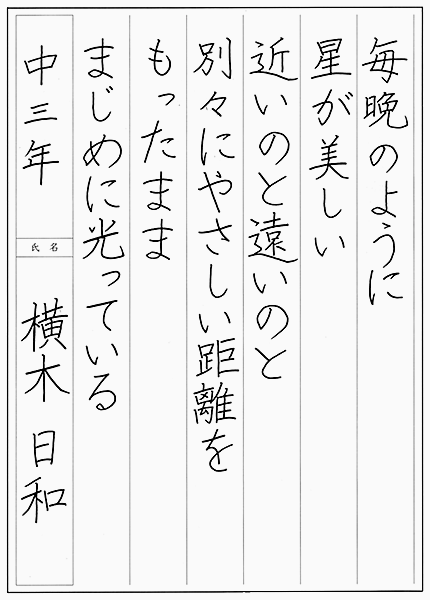 毎晩のように
星が美しい
近いのと遠いのと
別々にやさしい距離を
もったまま
まじめに光っている
中三年
氏名
横木 日和